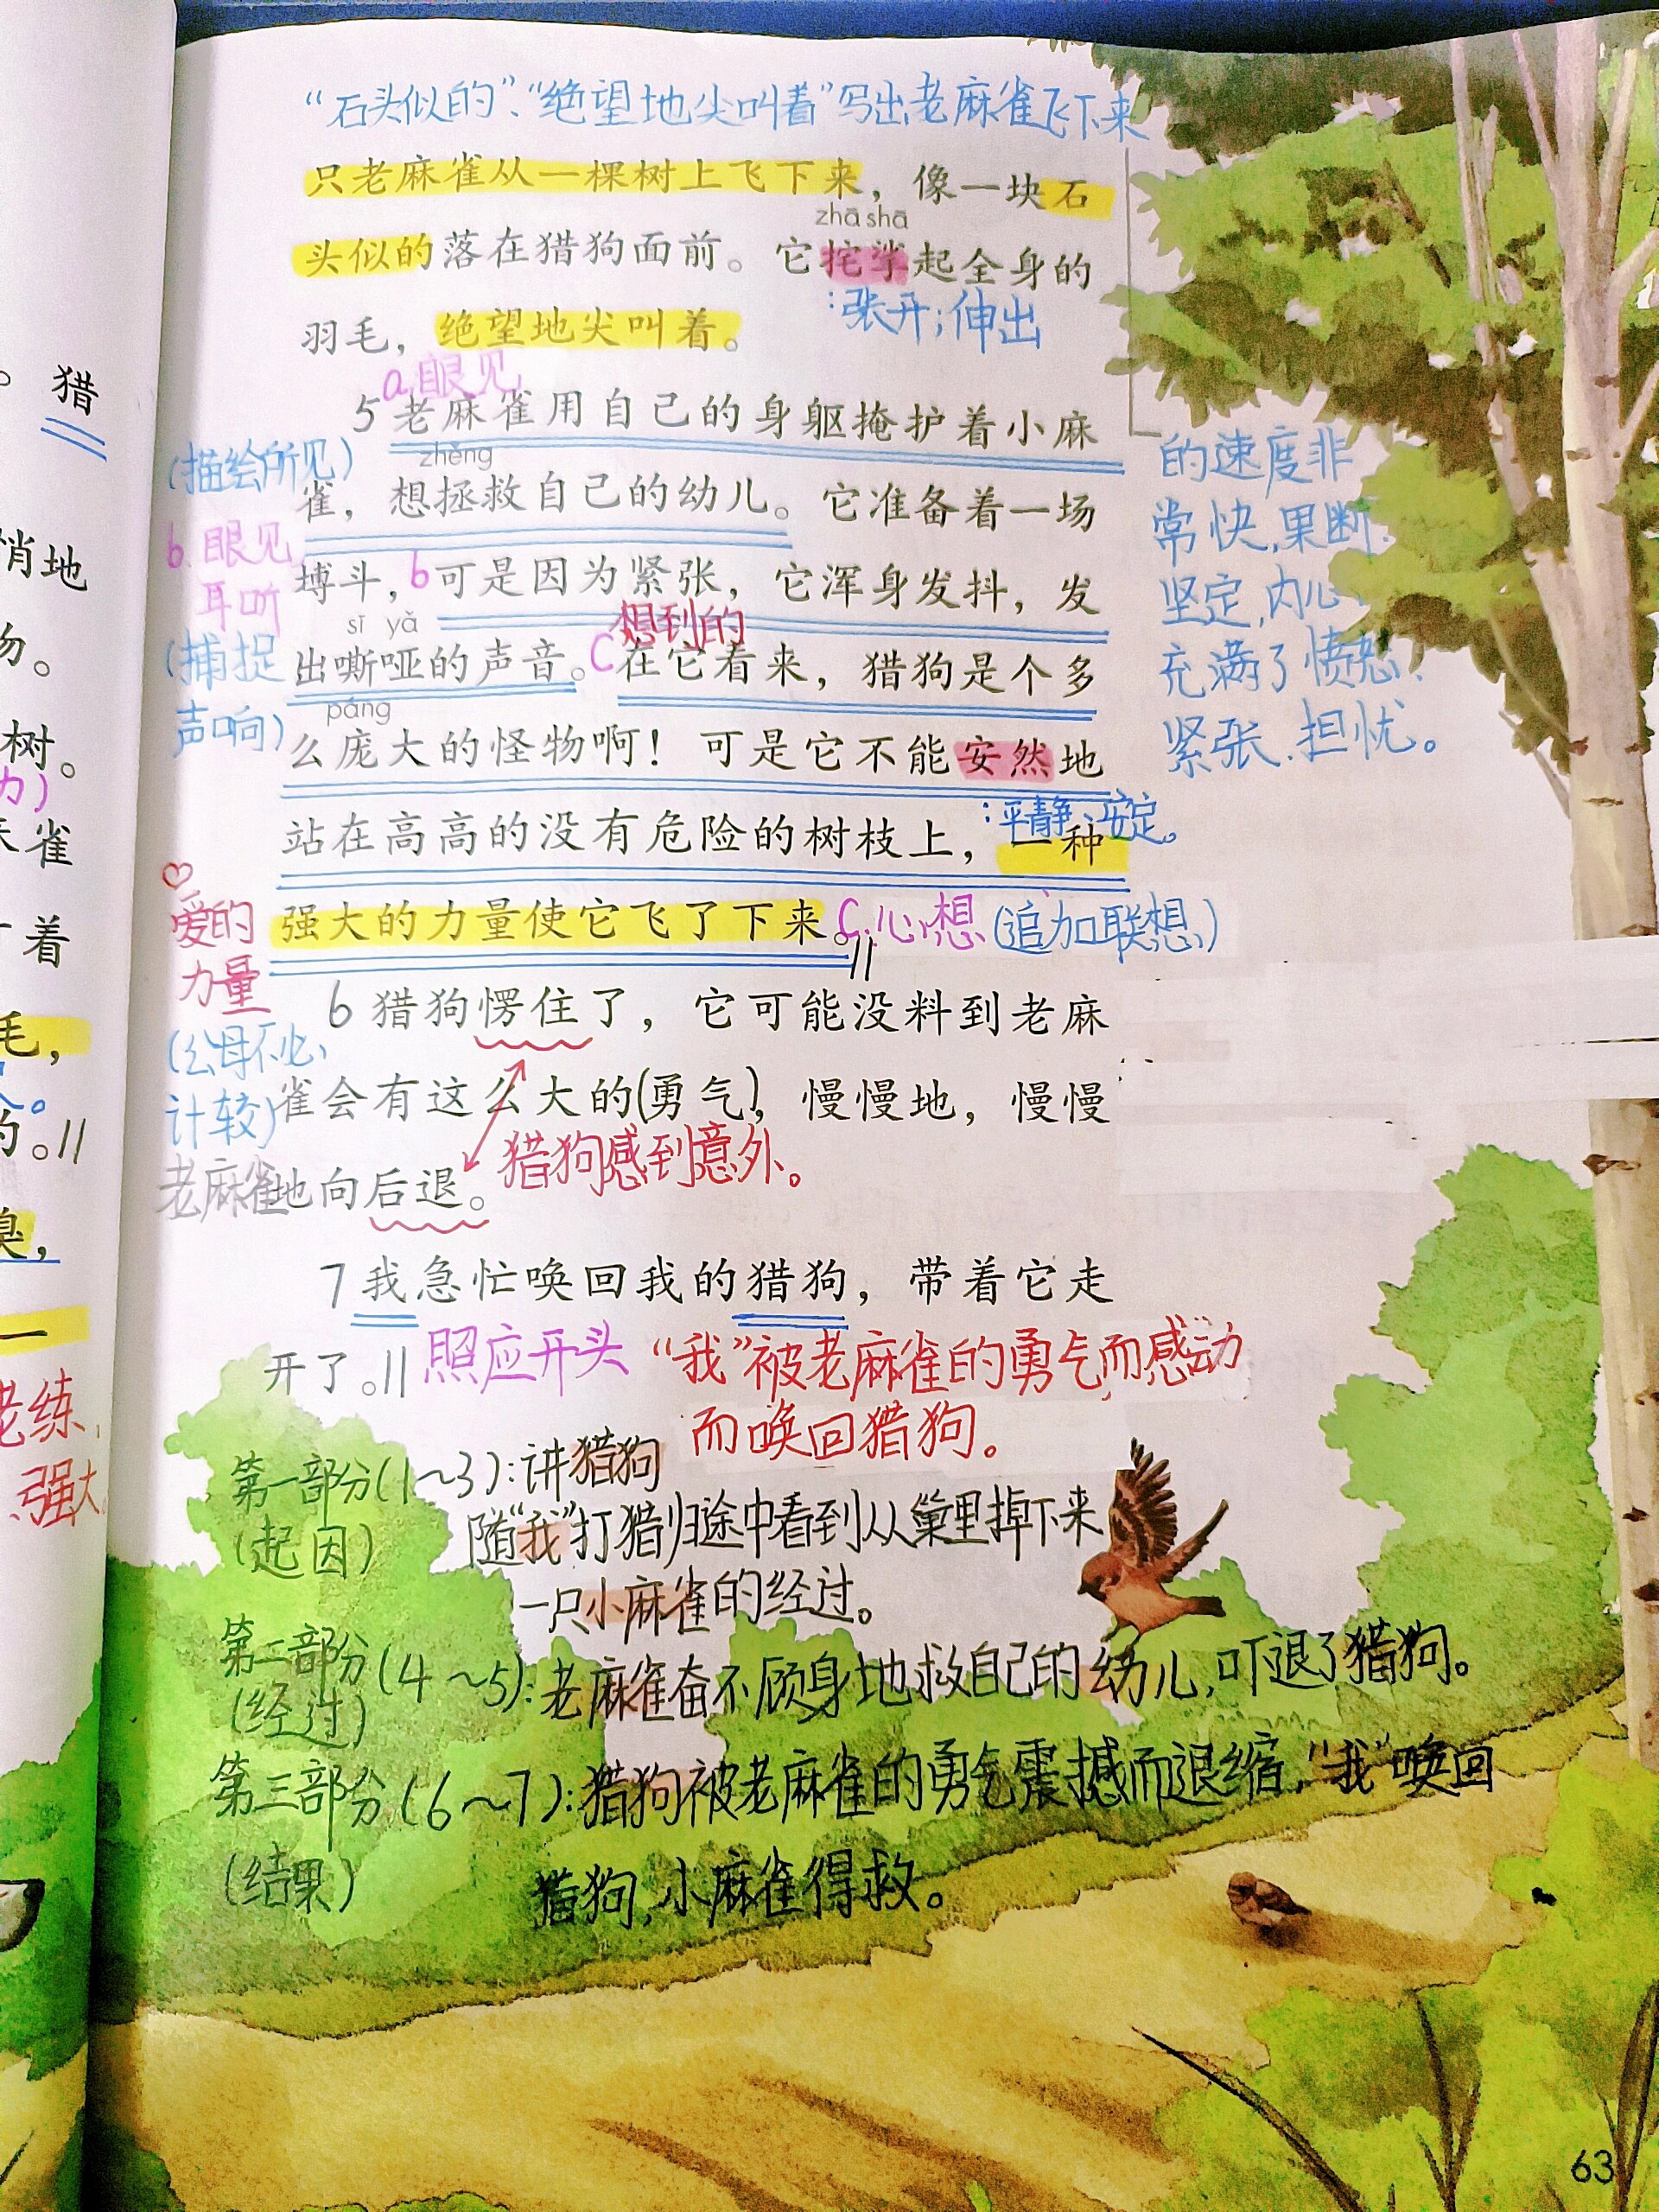 “石头似的”、“绝望地尖叫着”写出老麻雀飞下来
只老麻雀从一棵树上飞下来，像一块石
zhā shā
头似的落在猎狗面前。它挓挲起全身的
：张开；伸出
羽毛，绝望地尖叫着。
a.眼见
5 老麻雀用自己的身躯掩护着小麻
(描绘所见)
zhěng
雀，想拯救自己的幼儿。它准备着一场
b.眼见
耳听
搏斗，b可是因为紧张，它浑身发抖，发
想到的
sī yǎ
(捕捉
声响)
出嘶哑的声音。C在它看来，猎狗是个多
páng
么庞大的怪物啊！可是它不能安然地
：平静、安定。
站在高高的没有危险的树枝上，一种
爱的
力量
强大的力量使它飞了下来。C.心想(追加联想)
的速度非
常快,果断.
坚定,内心
充满了愤怒.
紧张.担忧。
6 猎狗愣住了，它可能没料到老麻
(公母不必
计较)
雀会有这么大的(勇气)，慢慢地，慢慢
猎狗感到意外。
老麻雀
地向后退。
7 我急忙唤回我的猎狗，带着它走
开了。//
照应开头
“我”被老麻雀的勇气而感动
而唤回猎狗。
第一部分(1～3):讲猎狗
(起因)
随“我”打猎归途中看到从巢里掉下来
一只小麻雀的经过。
第二部分(4～5):老麻雀奋不顾身地救自己的幼儿,吓退了猎狗。
(经过)
第三部分(6～7):猎狗被老麻雀的勇气震撼而退缩,“我”唤回
(结果)
猎狗,小麻雀得救。
63
。猎
悄地
物。
树。
力)
雀
着
毛，
的。//
臭，
一
老练.
强大